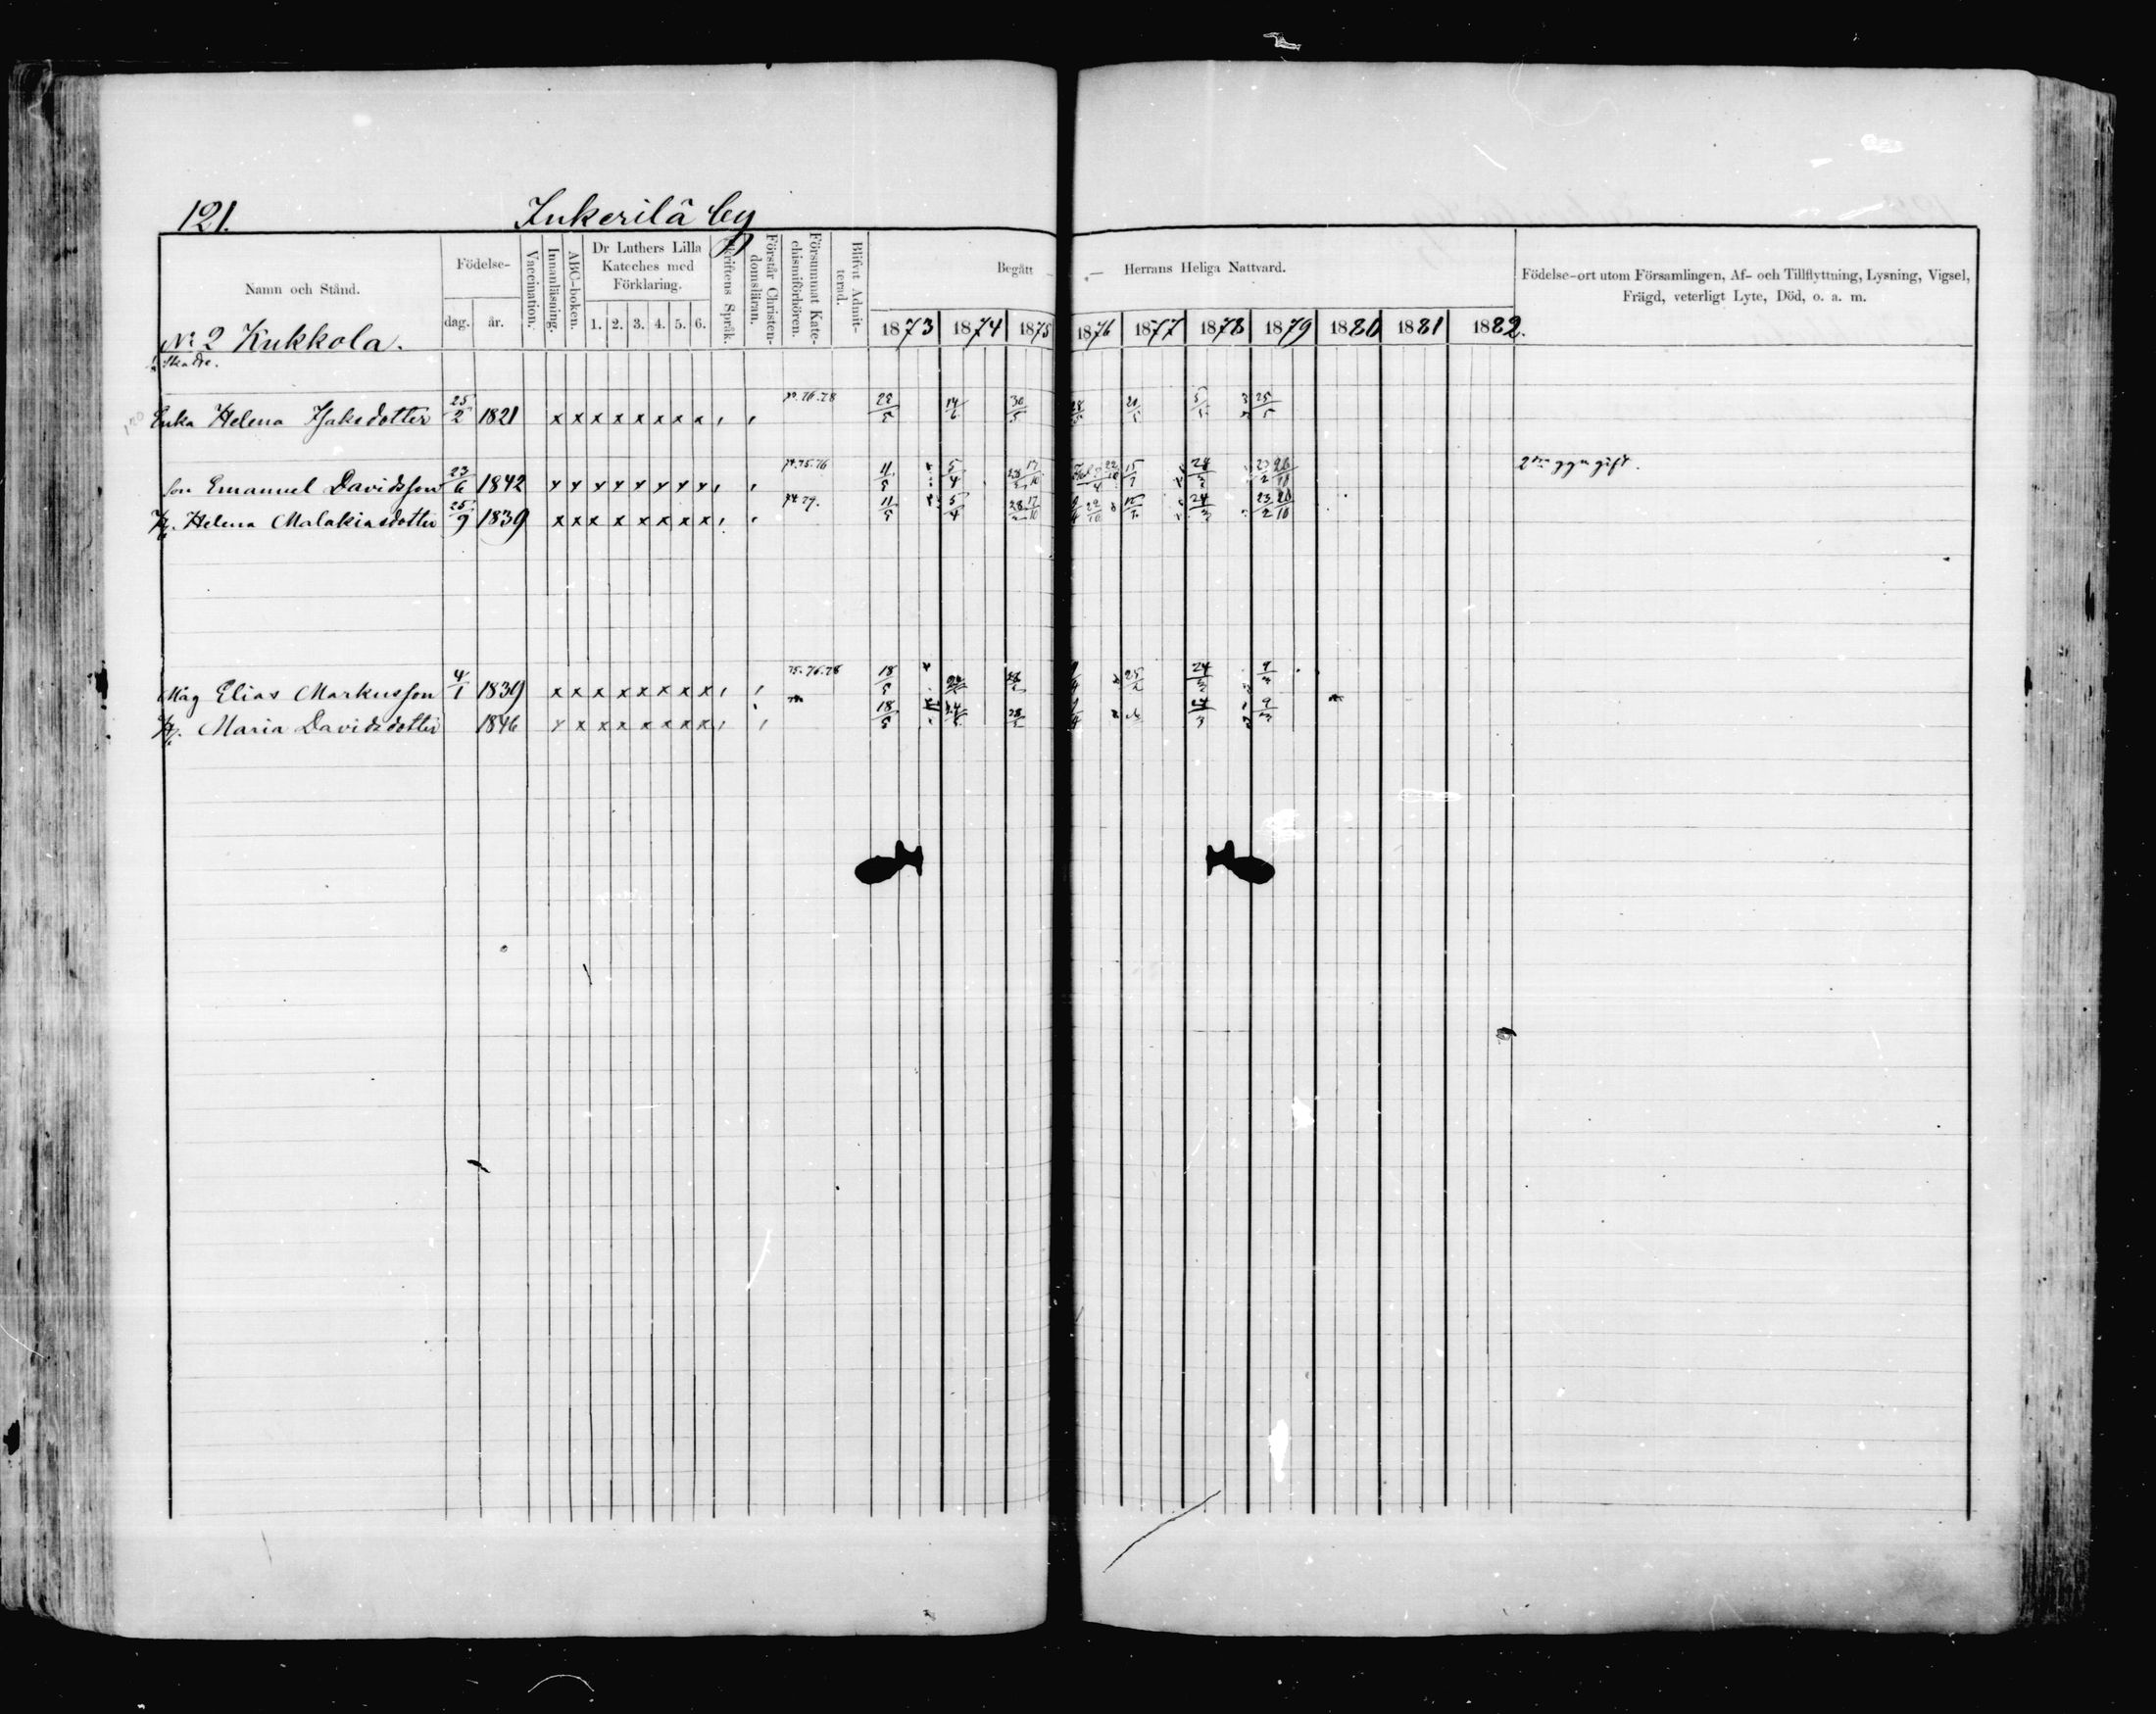 121. Inkerilä by
Namn och Stånd.
Födelse-
dag. år.
Vaccination.
Innanläsning.
ABC-boken.
Dr Luthers Lilla
Kateches med
Förklaring.
1. 2. 3. 4. 5. 6.
Skriftens Språk.
Förstår Christen-
domsläran.
Försummat Kate-
chismiförhören.
Blifvit Admit-
terad.
Begått — — Herrans Heliga Nattvard.
1873 1874 1875 1876 1877 1878 1879 1880 1881 1882.
Födelse-ort utom Församlingen, Af- och Tillflyttning, Lysning, Vigsel,
Frägd, veterligt Lyte, Död, o. a. m.
No 2 Kukkola.
Enka Helena Isaksdotter 25/2 1821 x x x x x x x x 28/5 14/6 30/5 28/5 20/5 5/5 25/5
son Emanuel Davidsson 23/6 1842 x x x x x x x x 74.75.76 11/5 5/4 28/2 17/10 22/10 15/7 24/3 23/2 26/10 2dra ggn gift.
H. Helena Malakiasdotter 25/9 1839 x x x x x x x x 11/5 5/4 28/2 17/10 9/4 22/10 15/7 24/3 23/2 26/10
Måg Elias Markusson 4/1 1839 x x x x x x x x 75.76.78 18/5 28/2 9/4 25/2 24/3 9/3
H. Maria Davidsdotter 1846 x x x x x x x x 18/5 28/2 9/4 24/3 9/3